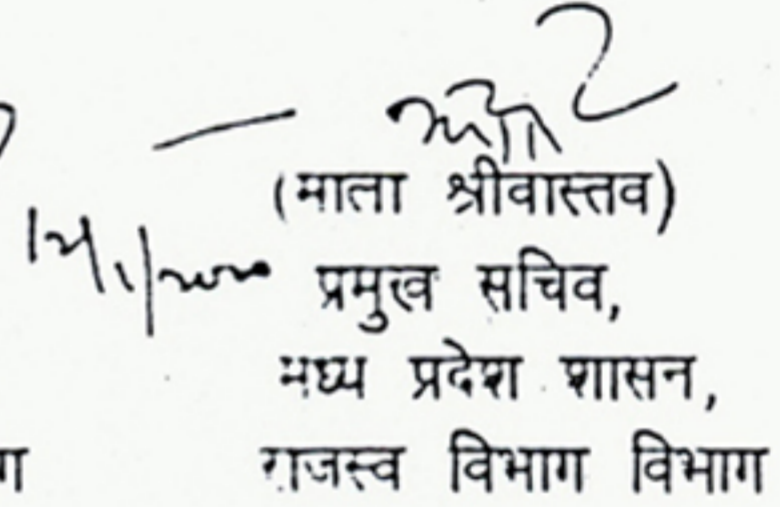 (माता श्रीवास्तव)
प्रमुख सचिव,
मध्य प्रदेश शासन,
ग राजस्व विभाग विभाग